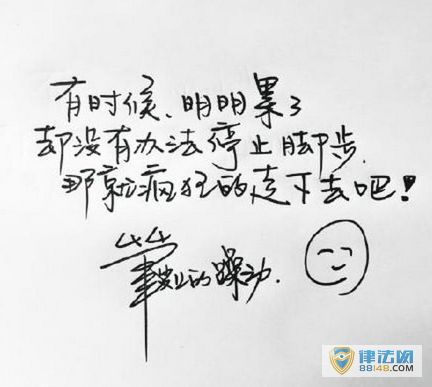 有时候、明明累了
却没有办法停止脚步.
那就疯狂的走下去吧!
笔划的躁动.
律法网
88148.COM